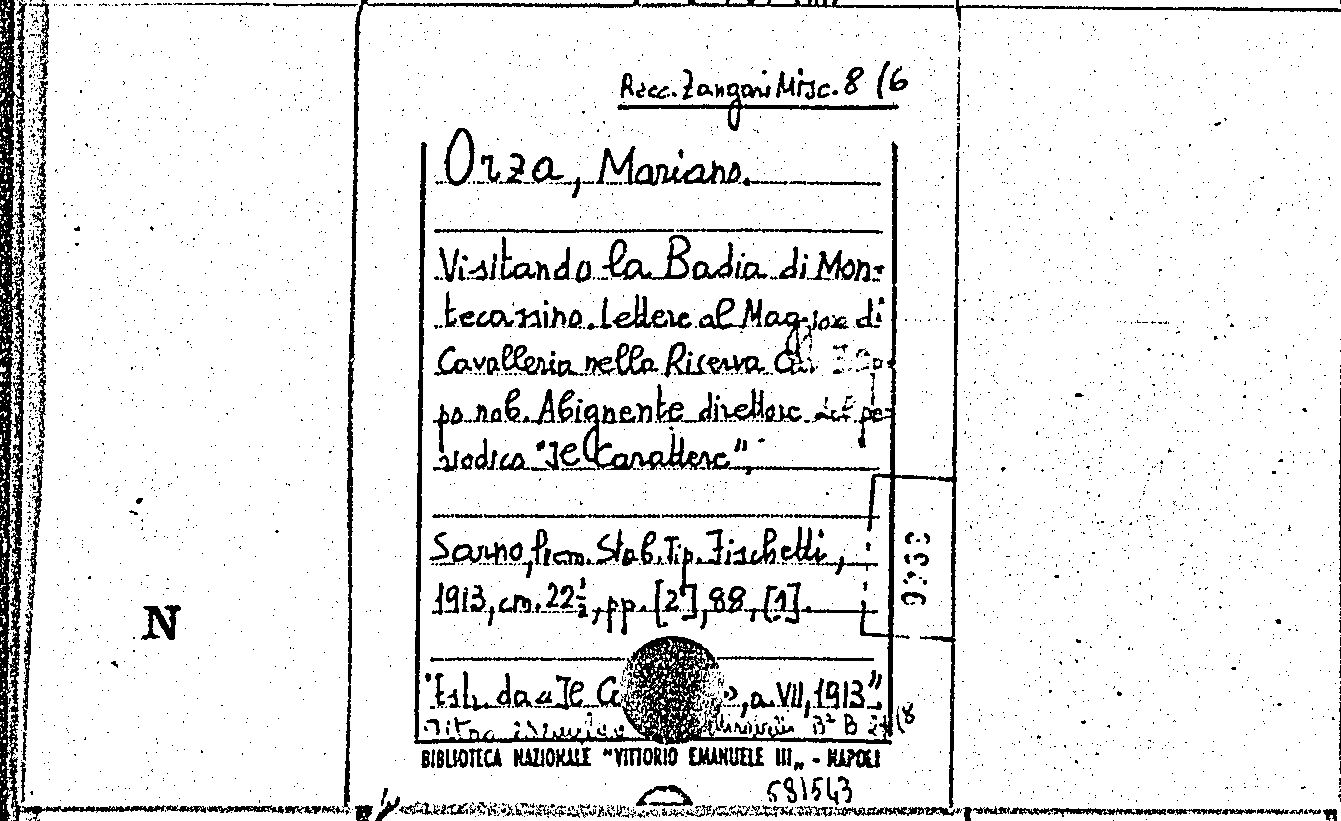 Racc. Zangari Misc. 8 (6
Orza, Mariano.
Visitando la Badia di Mon=
tecassino. Lettere al Maggiore di
Cavalleria nella Riserva Cav. Filip=
po nob. Abignente direttore del pe=
riodico "Il Carattere".
Sarno, Prem. Stab. Tip. Fischetti,
1913, cm. 22½, pp. [2], 88, [1].
"Estr. da «Il C », a. VII, 1913".
B² B (8
BIBLIOTECA NAZIONALE "VITTORIO EMANUELE III„ - NAPOLI
581543
N